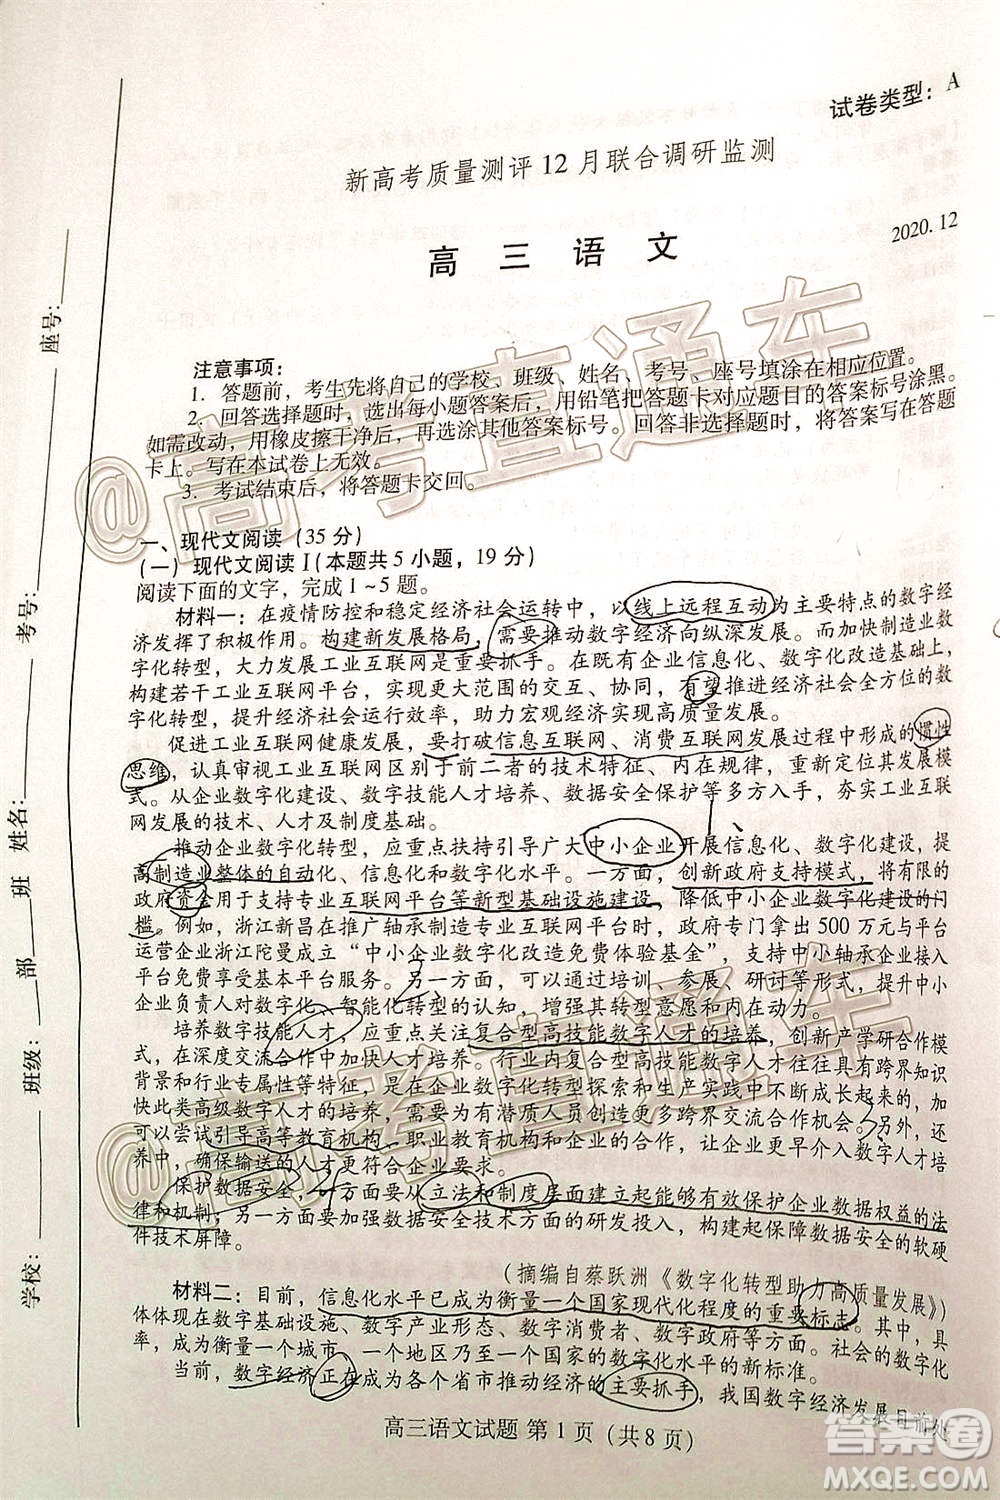 试卷类型：A
新高考质量测评12月联合调研监测
2020.12
高三语文
注意事项：
1．答题前，考生先将自己的学校、班级、姓名、考号、座号填涂在相应位置。
2．回答选择题时，选出每小题答案后，用铅笔把答题卡对应题目的答案标号涂黑。
如需改动，用橡皮擦干净后，再选涂其他答案标号。回答非选择题时，将答案写在答题
卡上。写在本试卷上无效。
3．考试结束后，将答题卡交回。
一、现代文阅读（35分）
（一）现代文阅读Ⅰ（本题共5小题，19分）
阅读下面的文字，完成1～5题。
材料一：在疫情防控和稳定经济社会运转中，以线上远程互动为主要特点的数字经
济发挥了积极作用。构建新发展格局，需要推动数字经济向纵深发展。而加快制造业数
字化转型，大力发展工业互联网是重要抓手。在既有企业信息化、数字化改造基础上，
构建若干工业互联网平台，实现更大范围的交互、协同，有望推进经济社会全方位的数
字化转型，提升经济社会运行效率，助力宏观经济实现高质量发展。
促进工业互联网健康发展，要打破信息互联网、消费互联网发展过程中形成的惯性
思维，认真审视工业互联网区别于前二者的技术特征、内在规律，更要重视其发展模
式。从企业数字化建设、数字技能人才培养、数据安全保护等多方入手，夯实工业互联
网发展的技术、人才及制度基础。
推动企业数字化转型，应重点扶持引导广大中小企业开展信息化、数字化建设，提
高制造业整体的自动化、信息化和数字化水平。一方面，创新政府支持模式，将以往的
政府资金用于支持专业互联网平台等新型基础设施建设，降低中小企业数字化建设的门
槛。例如，浙江新昌在推广轴承制造专业互联网平台时，政府专门拿出500万元与平台
运营企业浙江陀曼成立“中小企业数字化改造免费体验基金”，支持中小轴承企业接入
平台免费享受基本平台服务。另一方面，可以通过培训、参展、研讨等形式，提升中小
企业负责人对数字化、智能化转型的认知，增强其转型意愿和内在动力。
培养数字技能人才，应重点关注复合型高技能数字人才的培养，创新产学研合作模
式，在深度交流合作中加快人才培养。行业内复合型高技能数字人才往往具有跨界知识
背景和行业专属性等特征，是在企业数字化转型探索和生产实践中不断成长起来的。加
快此类高级数字人才的培养，需要为有潜质人员创造更多跨界交流合作机会。另外，还
可以尝试引导高等教育机构、职业教育机构和企业的合作，让企业更早介入数字人才培
养中，确保输送的人才符合企业要求。
保护数据安全，一方面要从立法和制度层面建立起能够有效保护企业数据权益的法
律和机制，另一方面要加强数据安全技术方面的研发投入，构建起保障数据安全的软硬
件技术屏障。
（摘编自蔡跃洲《数字化转型助力高质量发展》）
材料二：目前，信息化水平已成为衡量一个国家现代化程度的重要标志。其中，具
体体现在数字基础设施、数字产业形态、数字消费者、数字政府等方面。社会的数字化
率，成为衡量一个城市、一个地区乃至一个国家的数字化水平的新标准。
当前，数字经济正在成为各个省市推动经济的主要抓手，我国数字经济发展目前处
高三语文试题 第1页（共8页）
学校：
班级：
部
班
姓名：
考号：
座号：
@高考直通车
@高考直通车
答案圈
MXQE.COM